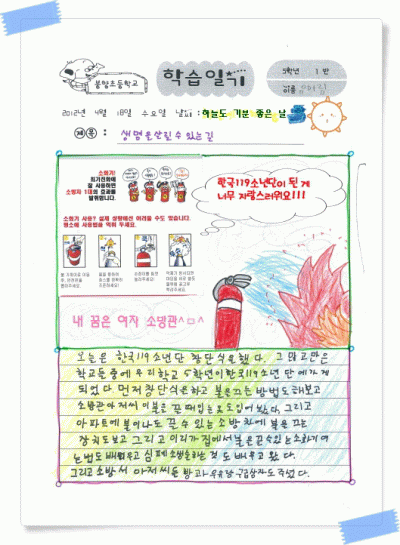 봉황초등학교
학습일기
5학년 1반
이름
2012년 4월 18일 수요일 날씨 : 하늘도 기분 좋은 날
제목 : 생명을 살릴 수 있는 길
소화기!
초기진화에
잘 사용하면
소방차 1대의 효과를
발휘합니다.
한국119소년단이 된 게
너무 자랑스러워요!!!
소화기 사용? 실제 상황에선 어려울 수도 있습니다.
평소에 사용법을 익혀 두세요.
내 꿈은 여자 소방관^ㅁ^
오늘은 한국119소년단 창단식을 했다. 그 많고 많은
학교들 중에 우리학교 5학년이 한국119소년단에 가게
되었다. 먼저 창단식을 하고 불 끄는 방법도 해보고
소방관아저씨이 불을 끌 때 입는 옷도 입어 봤다. 그리고
아파트에 불이나도 끌 수 있는 소방차에 불을 끄는
장치도 보고 그리고 미리가 집에서 불을 끌 수 있는 소화기 여
는 법도 배웠우고 심폐소생술하는 것도 배우고 왔다.
그리고 소방서 아저씨들 빵과 우유랑 구급상자도 주셨다.